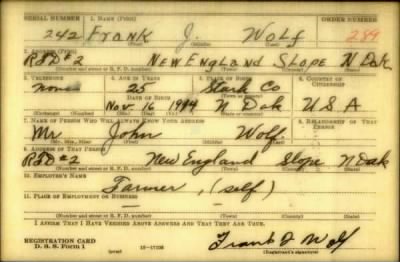 SERIAL NUMBER 1. NAME (Print) ORDER NUMBER
242 Frank J. Wolf 289
2. ADDRESS (Print)
RFD #2 New England Slope N Dak
(Number and street or R. F. D. number) (Town) (County) (State)
3. TELEPHONE 4. AGE IN YEARS 5. PLACE OF BIRTH 6. COUNTRY OF CITIZENSHIP
none 25 Stark Co
DATE OF BIRTH
Nov. 16 N Dak U S A
(Exchange) (Number) (Mo.) (Day) (Yr.) (State or country)
7. NAME OF PERSON WHO WILL ALWAYS KNOW YOUR ADDRESS 8. RELATIONSHIP OF THAT PERSON
Mr John Wolf
(Mr., Mrs., Miss) (First) (Middle) (Last)
9. ADDRESS OF THAT PERSON
RFD #2 New England Slope N Dak
(Number and street or R. F. D. number) (Town) (County) (State)
10. EMPLOYER'S NAME
Farmer, (self)
11. PLACE OF EMPLOYMENT OR BUSINESS
(Number and street or R. F. D. number) (Town) (County) (State)
I AFFIRM THAT I HAVE VERIFIED ABOVE ANSWERS AND THAT THEY ARE TRUE.
REGISTRATION CARD
D. S. S. Form 1 (over) 16-17105 Frank J Wolf
(Registrant's signature)